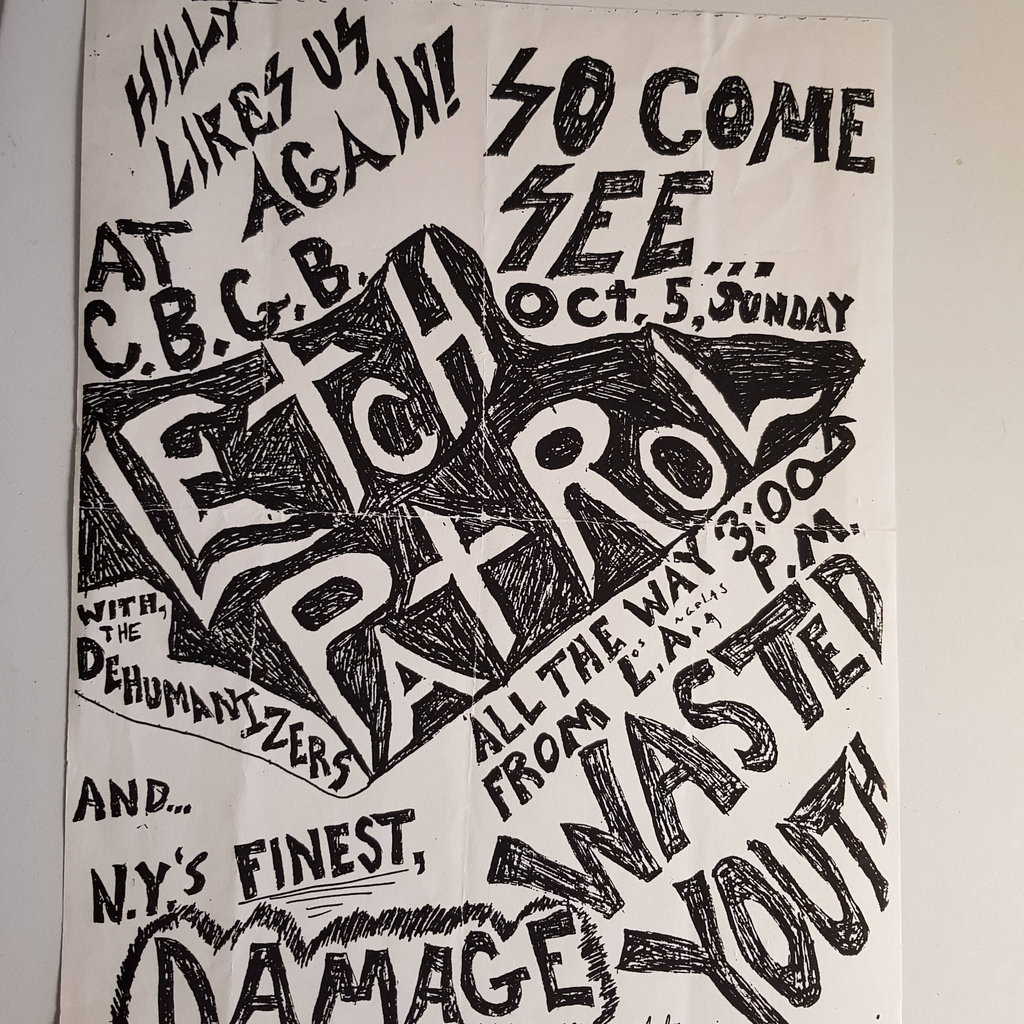 HILLY
LIKES US
AGAIN!
SO COME
SEE...
AT
C.B.G.B.
OCT. 5, SUNDAY
LETCH
PATROL
3:00
P.M.
WITH,
THE
DEHUMANIZERS
ALL THE WAY
FROM L.A.
WASTED
YOUTH
AND...
N.Y.'S FINEST,
DAMAGE